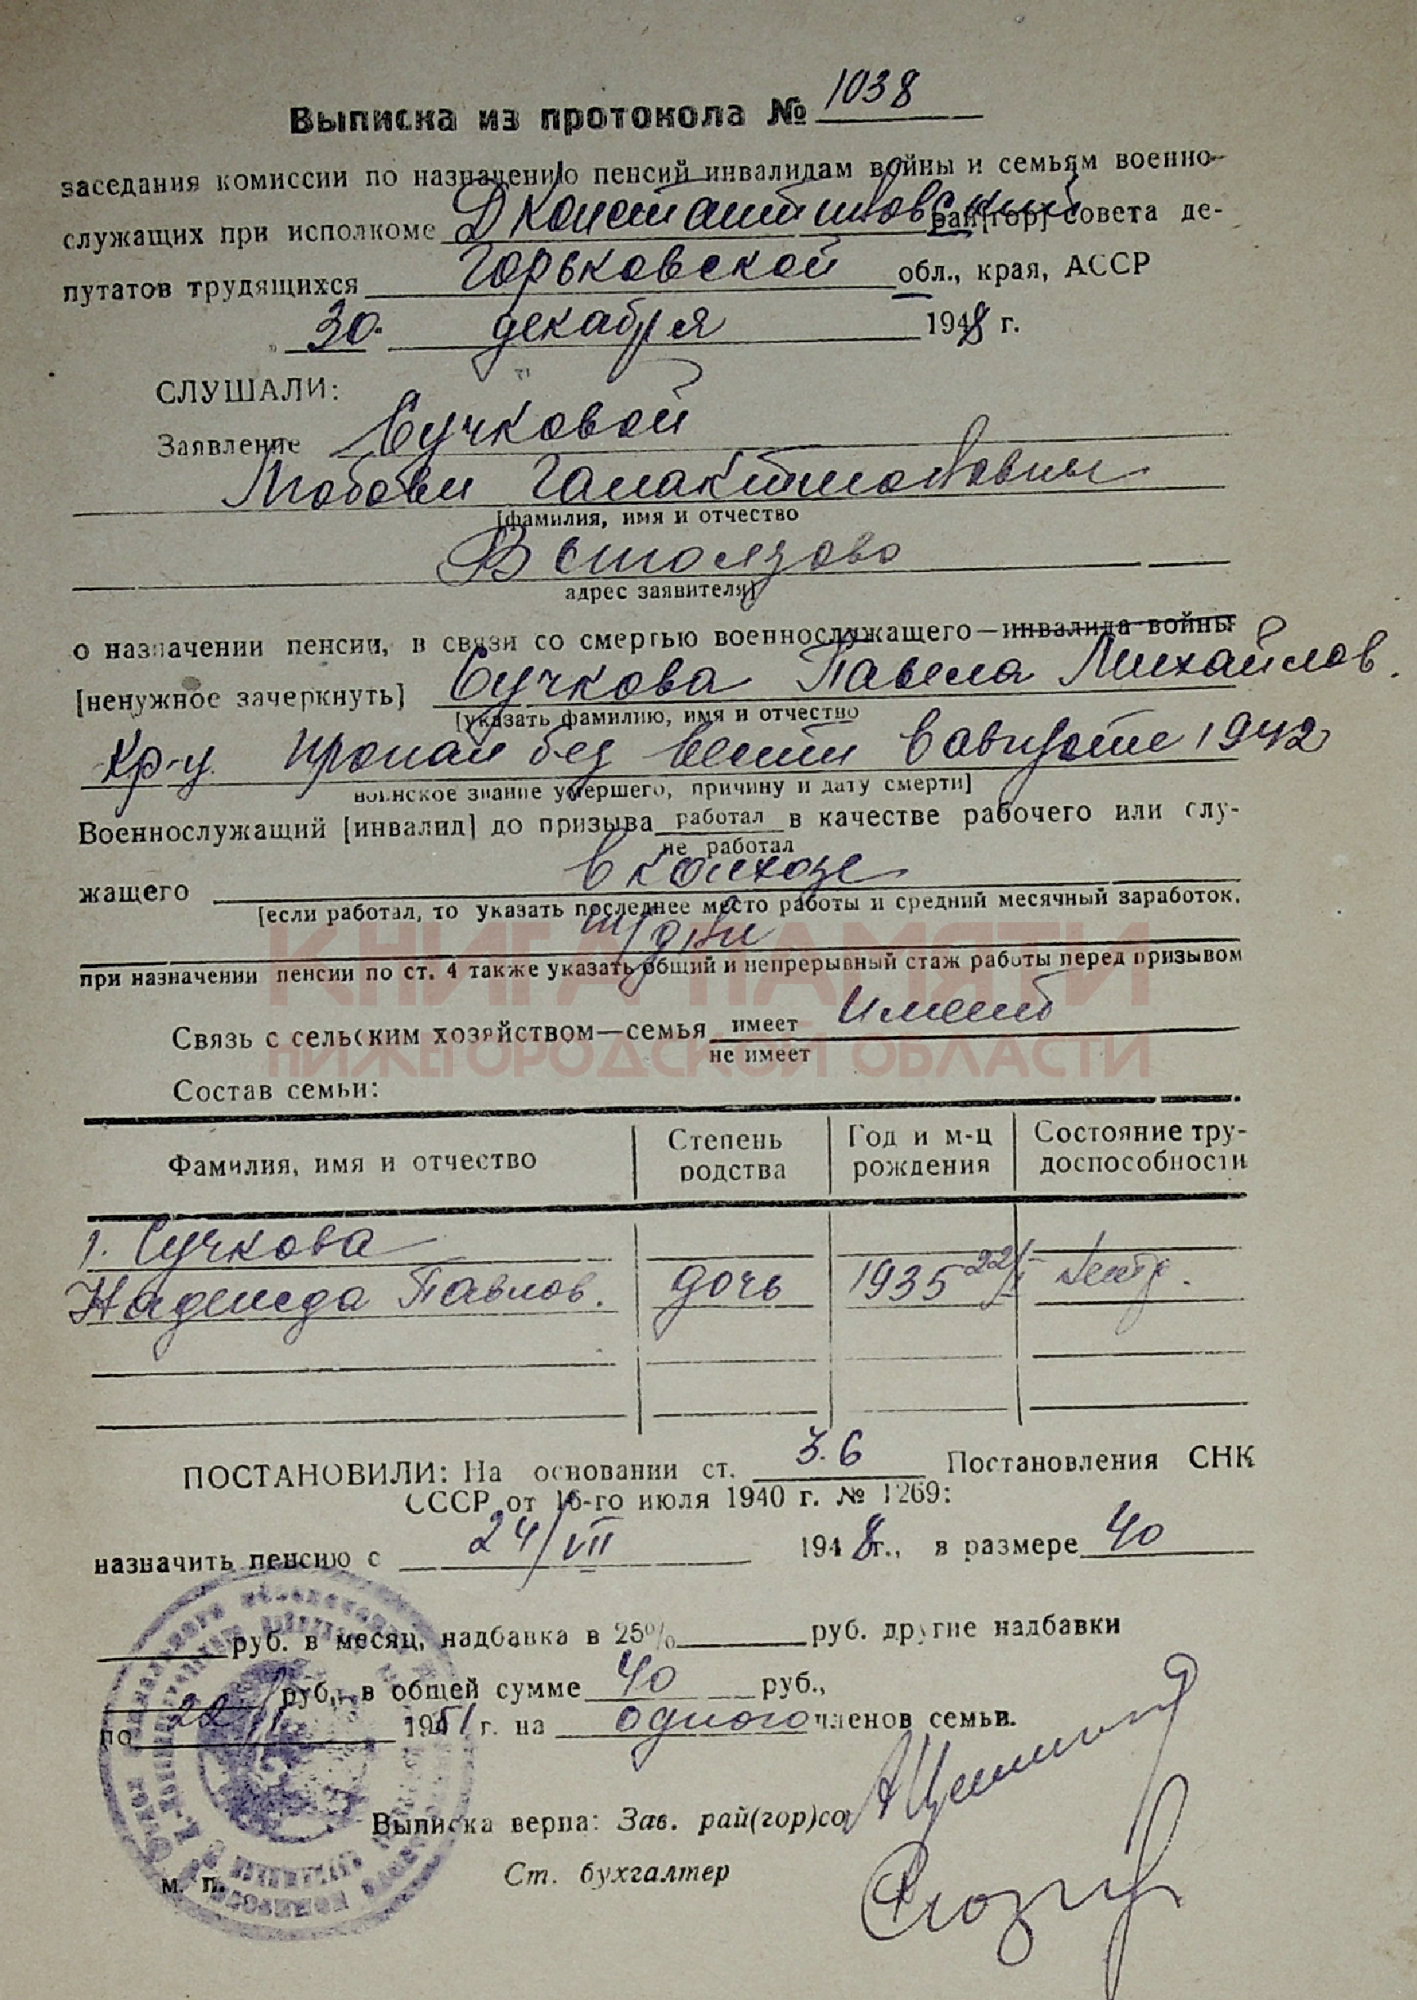 Выписка из протокола № 1038
заседания комиссии по назначению пенсий инвалидам войны и семьям военно-
служащих при исполкоме Д Константиновский рай[гор] совета де-
путатов трудящихся Горьковской обл., края, АССР
„ 30 декабря 1948 г.
СЛУШАЛИ:
Заявление Сучковой
Любови Галактионовны
[фамилия, имя и отчество
В столзово
адрес заявителя]
о назначении пенсии, в связи со смертью военнослужащего—инвалида войны
[ненужное зачеркнуть] Сучкова Павела Михайлов.
[указать фамилию, имя и отчество
Кр-ц. пропал без вести в августе 1942
воинское звание умершего, причину и дату смерти]
Военнослужащий [инвалид] до призыва работал в качестве рабочего или слу-
не работал
жащего в колхозе
[если работал, то указать последнее место работы и средний месячный заработок.
т/дни
при назначении пенсии по ст. 4 также указать общий и непрерывный стаж работы перед призывом
КНИГА ПАМЯТИ
НИЖЕГОРОДСКОЙ ОБЛАСТИ
Связь с сельским хозяйством—семья имеет имеет
не имеет
Состав семьи:
Фамилия, имя и отчество Степень родства Год и м-ц рождения Состояние тру-доспособности
1. Сучкова
Надежда Павлов. дочь 1935 22/
ПОСТАНОВИЛИ: На основании ст. 3.6 Постановления СНК
СССР от 16-го июля 1940 г. № 1269:
назначить пенсию с 24/VII 1948 г., в размере 40
руб. в месяц, надбавка в 25% руб. другие надбавки
руб., в общей сумме 40 руб.,
по 22/ 1951 г. на одного членов семьи.
Выписка верна: Зав. рай(гор)со
Ст. бухгалтер
м. п.